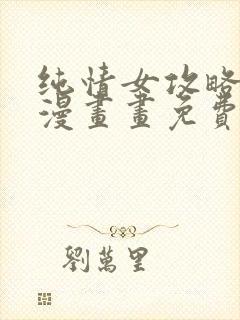 纯情女攻略
漫畫畫免費
劉萬里